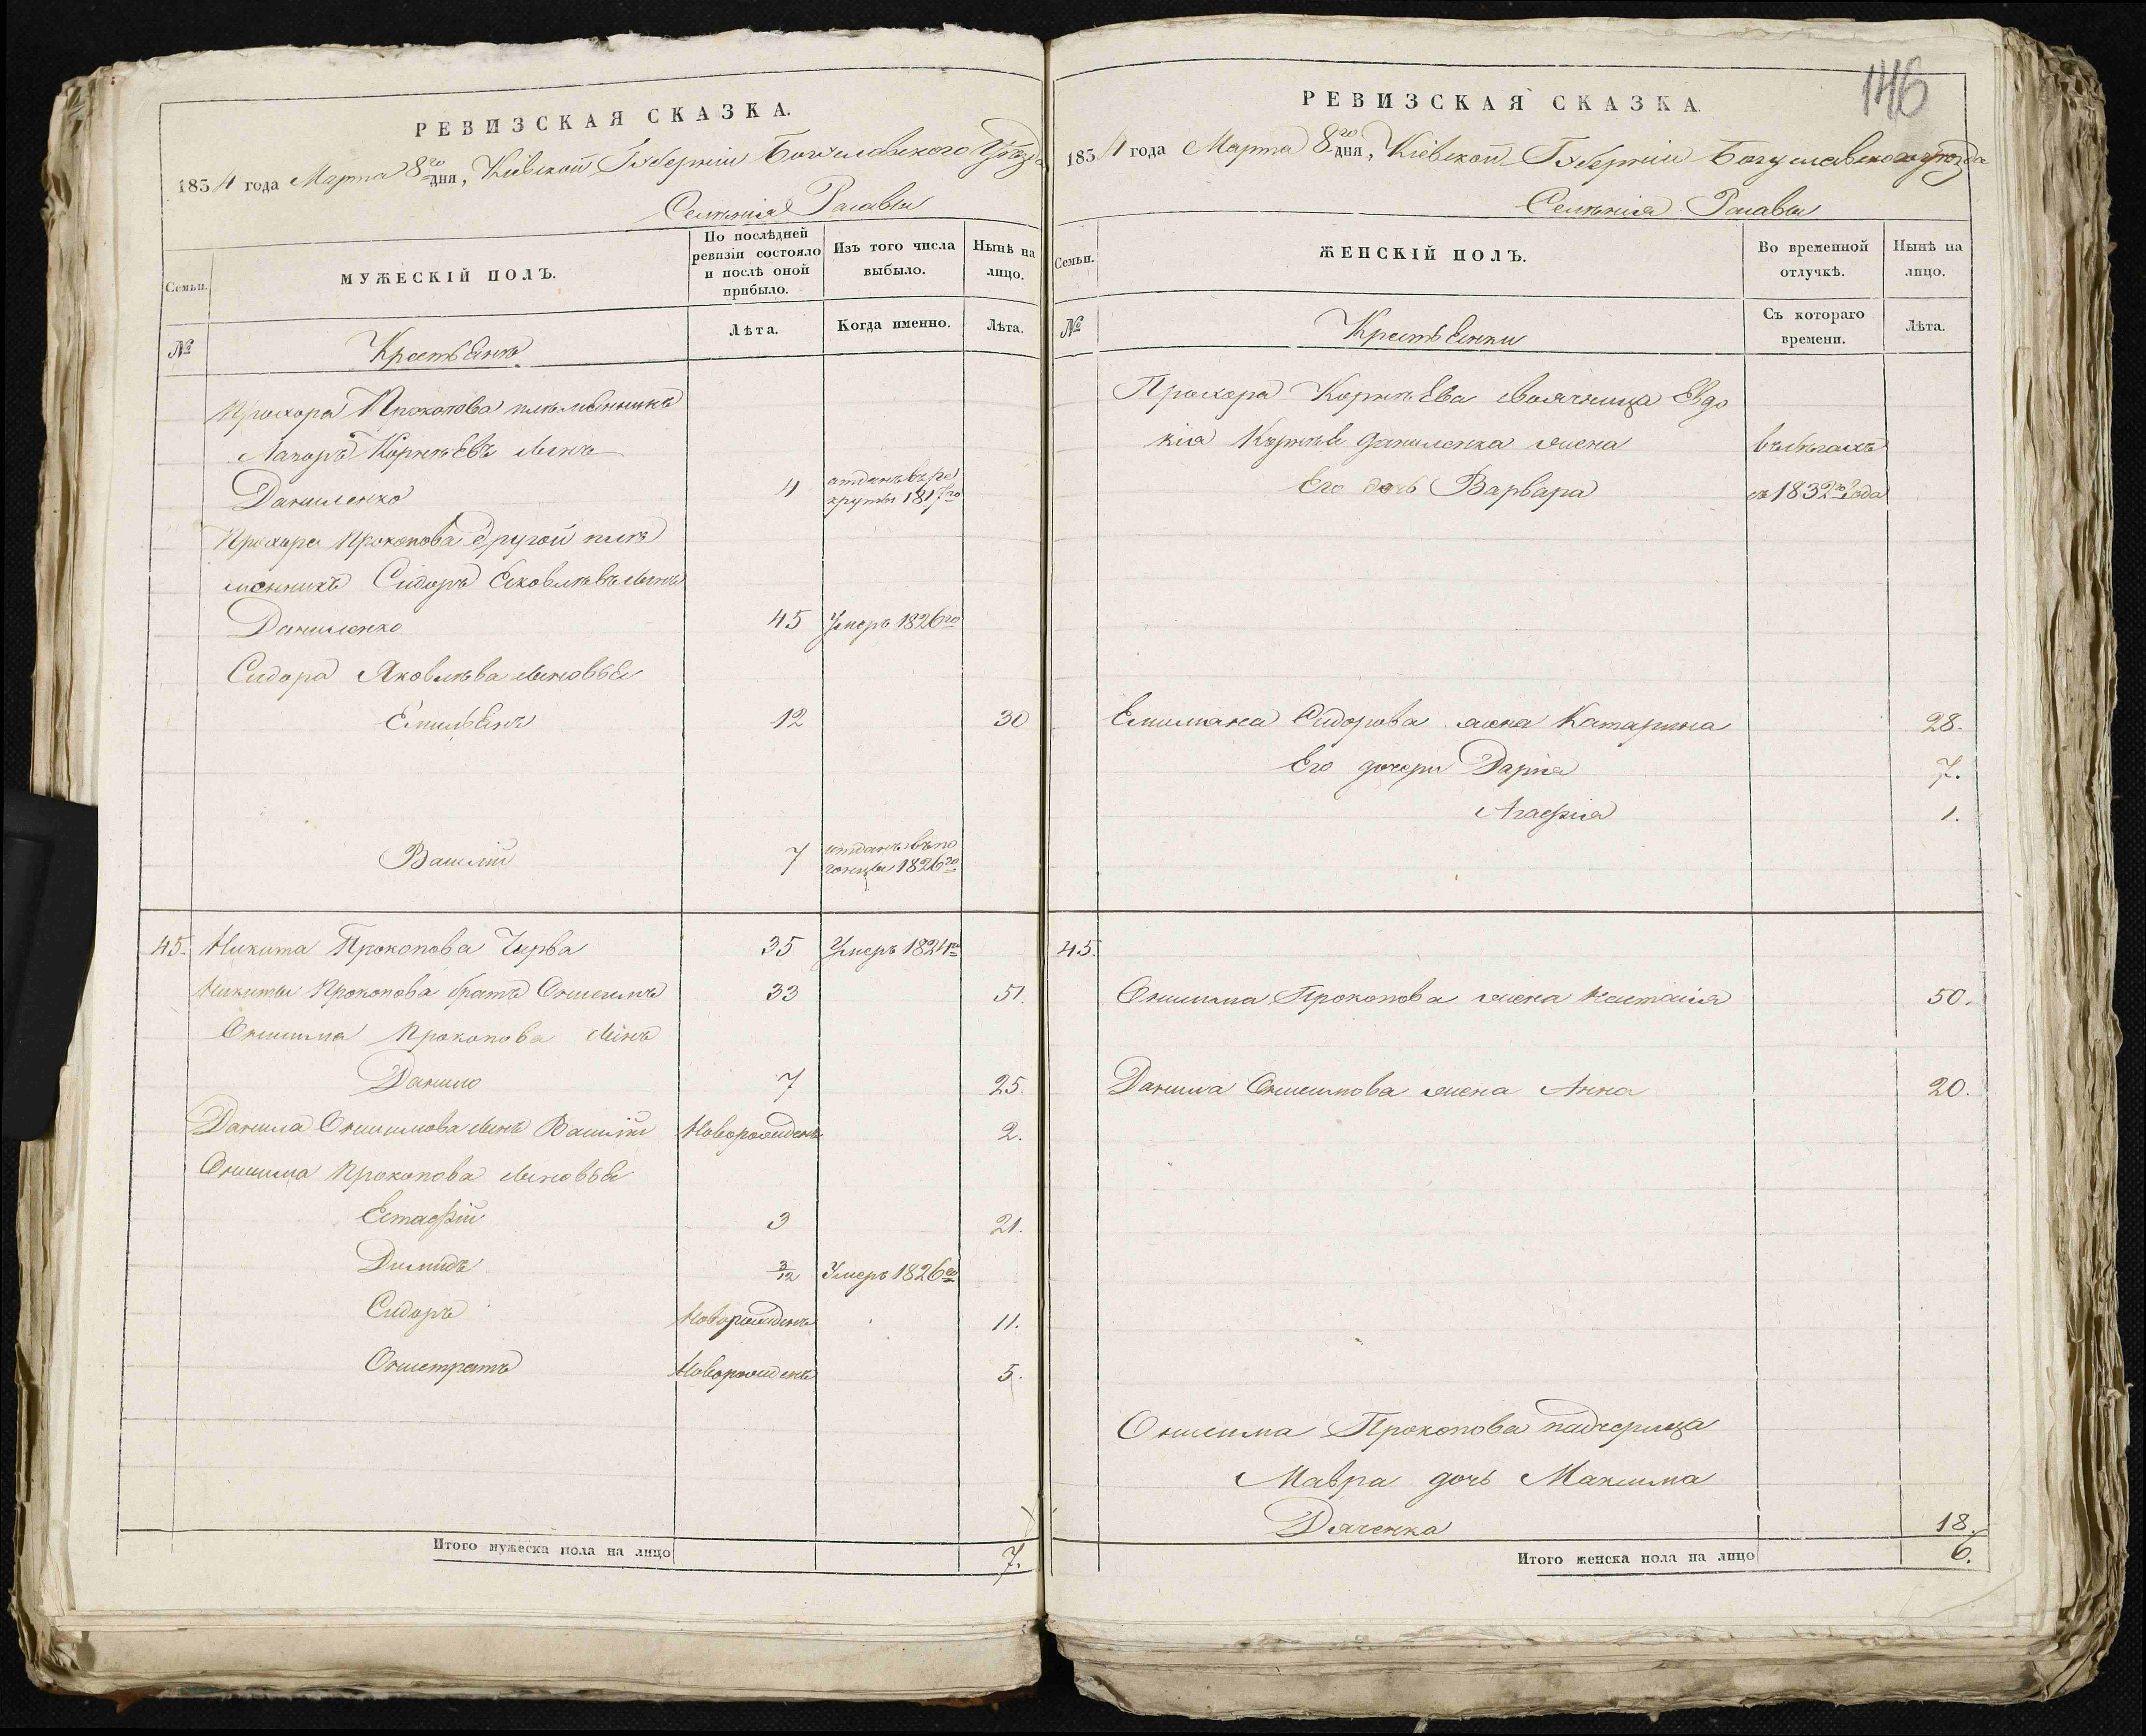 РЕВИЗСКАЯ СКАЗКА.
1834 года Марта 8го дня, Кіевской Губерніи Богуславского Уезда
Селенія Расавы
Семьи.
МУЖЕСКІЙ ПОЛЪ.
По послѣдней ревизіи состояло и послѣ оной прибыло.
Изъ того числа выбыло.
Нынѣ на лицо.
№
Крестьяне
Лѣта.
Когда именно.
Лѣта.
Прохора Прокопова племенникъ
Корнѣевъ сынъ
Даниленко 4 отданъ въ рекруты 1817го
Прохора Прокопова другой пле
менникъ Сидоръ Яковлевъ сынъ
Даниленко 45 Умеръ 1826го
Сидора Яковлева сыновья
Емильянъ 12 30
Василій 7 отданъ въ погонцы 1826го
45. Никита Прокопова Чирва 35 Умеръ 1824го
Никиты Прокопова братъ Онисимъ 33 51.
Онисима Прокопова синъ
Данило 7 25.
Данила Онисимова сынъ Василій Новорожденъ 2.
Онисима Прокопова сыновья
Естафій 3 21.
Димидъ 3/12 Умеръ 1826го
Сидоръ Новорожденъ 11.
Онистратъ Новорожденъ 5.
Итого мужеска пола на лицо 7.
146
РЕВИЗСКАЯ СКАЗКА
1834 года Марта 8го дня, Кіевской Губерніи Богуславского уезда
Селенія Расавы
Семьи.
ЖЕНСКІЙ ПОЛЪ.
Во временной отлучкѣ.
Нынѣ на лицо.
№
Крестьянки
Съ котораго времени.
Лѣта.
Прохора Корнѣева своячница Евдо
кія Даниленка жена въ бегахъ
Его дочь Варвара съ 1832го года
Емилиана Сидорова жена Катарина 28.
Его дочери Дарія 7.
Агафія 1.
45.
Онисима Прокопова жена Настасія 50.
Данила Онисимова жена Анна 20.
Онисима Прокопова падчерица
Мавра дочь Максима
Дяченка 18.
Итого женска пола на лицо 6.